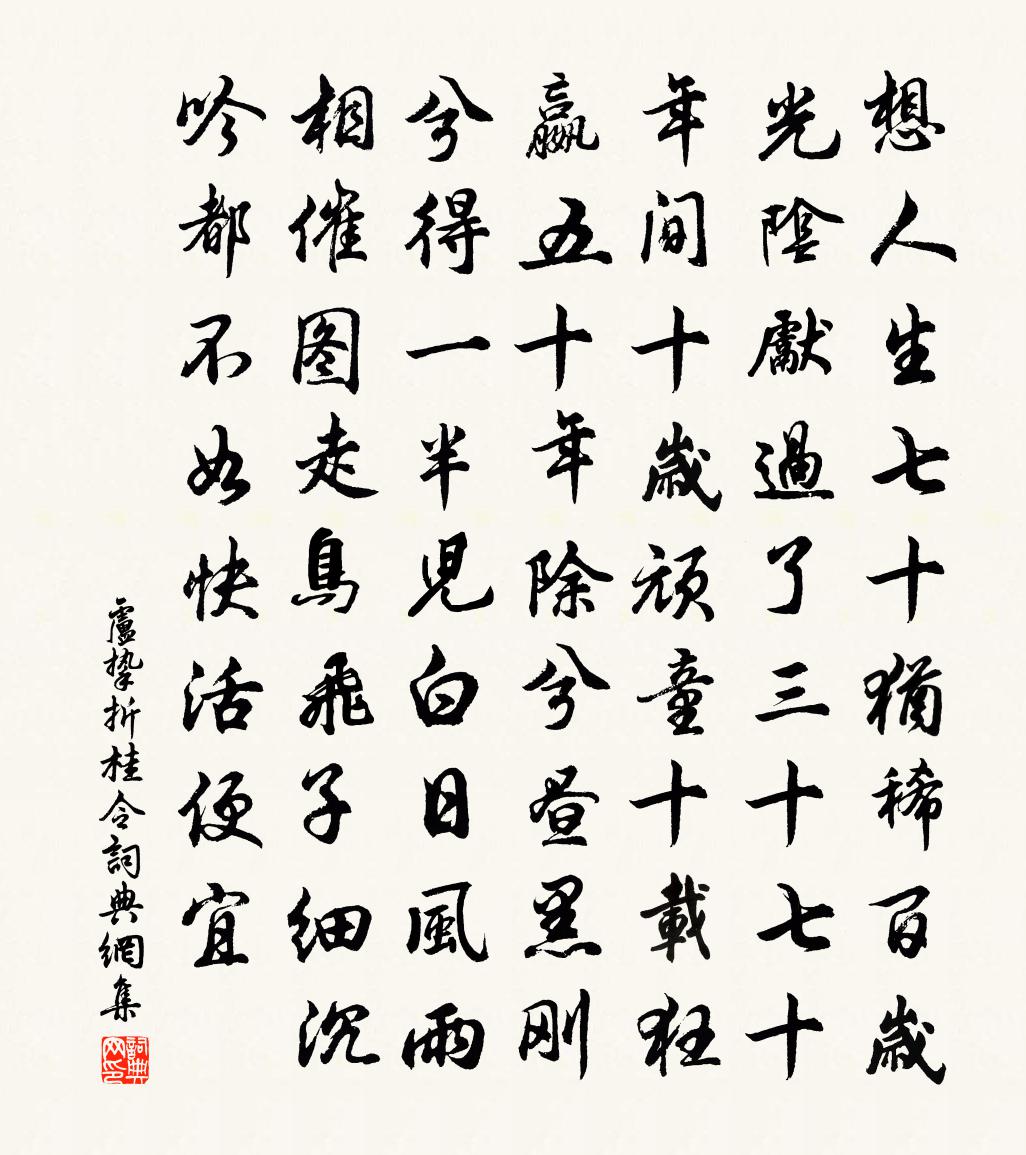 想人生七十猶稀百歲
光陰獻過了三十七十
年间十歲頑童十載狂
嬴五十年除兮昼黑刚
兮得一半児白日風雨
相催图走鳥飛子細沉
吟都不如快活便宜
盧摯折桂令詞典網集
詞典网印